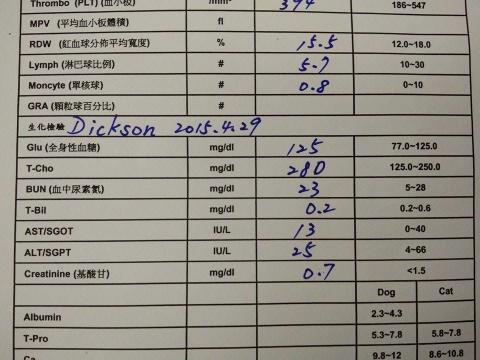 Thrombo (PLT) (血小板) /mm³ 394 186~547
MPV (平均血小板體積) fl
RDW (紅血球分佈平均寬度) % 15.5 12.0~18.0
Lymph (淋巴球比例) # 5.7 10~30
Moncyte (單核球) # 0.8 0~10
GRA (顆粒球百分比) #
生化檢驗 Dickson 2015.4.29
Glu (全身性血糖) mg/dl 125 77.0~125.0
T-Cho mg/dl 280 125.0~250.0
BUN (血中尿素氮) mg/dl 23 5~28
T-Bil mg/dl 0.2 0.2~0.6
AST/SGOT IU/L 13 0~40
ALT/SGPT IU/L 25 4~66
Creatinine (基酸甘) mg/dl 0.7 <1.5
Dog Cat
Albumin 2.3~4.3
T-Pro 5.3~7.8 5.8~7.8
Ca 9.8~12 8.6~10.8